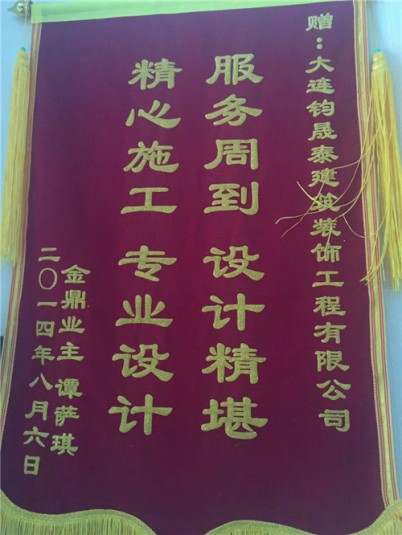 赠：大连钧晟泰建筑装饰工程有限公司
服务周到 设计精堪
精心施工 专业设计
金鼎业主 谭萨琪
二〇一四年八月六日